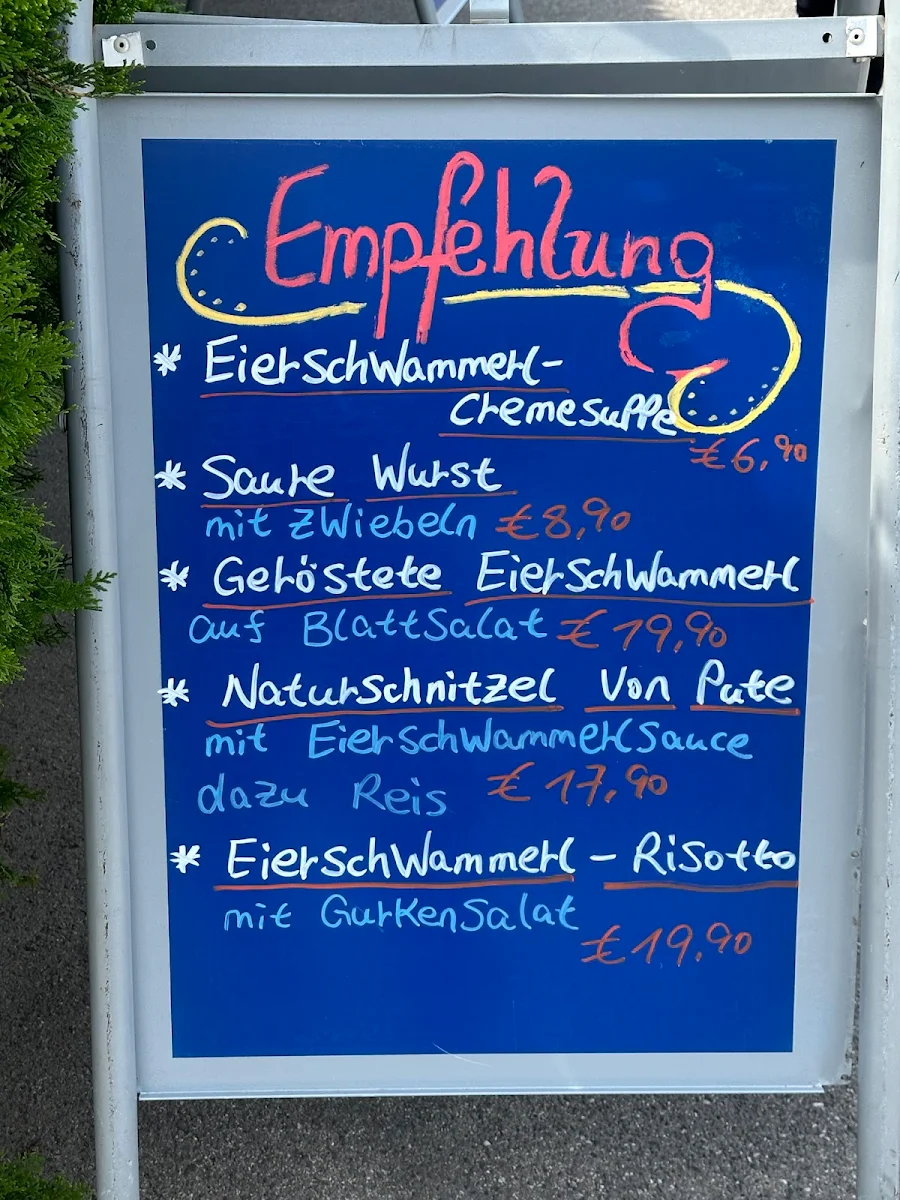 Empfehlung
* Eierschwammerl-
Cremesuppe
€ 6,90
* Saure Wurst
mit Zwiebeln € 8,90
* Geröstete Eierschwammerl
auf Blattsalat € 19,90
* Naturschnitzel von Pute
mit Eierschwammerlsauce
dazu Reis € 17,90
* Eierschwammerl - Risotto
mit Gurkensalat
€ 19,90